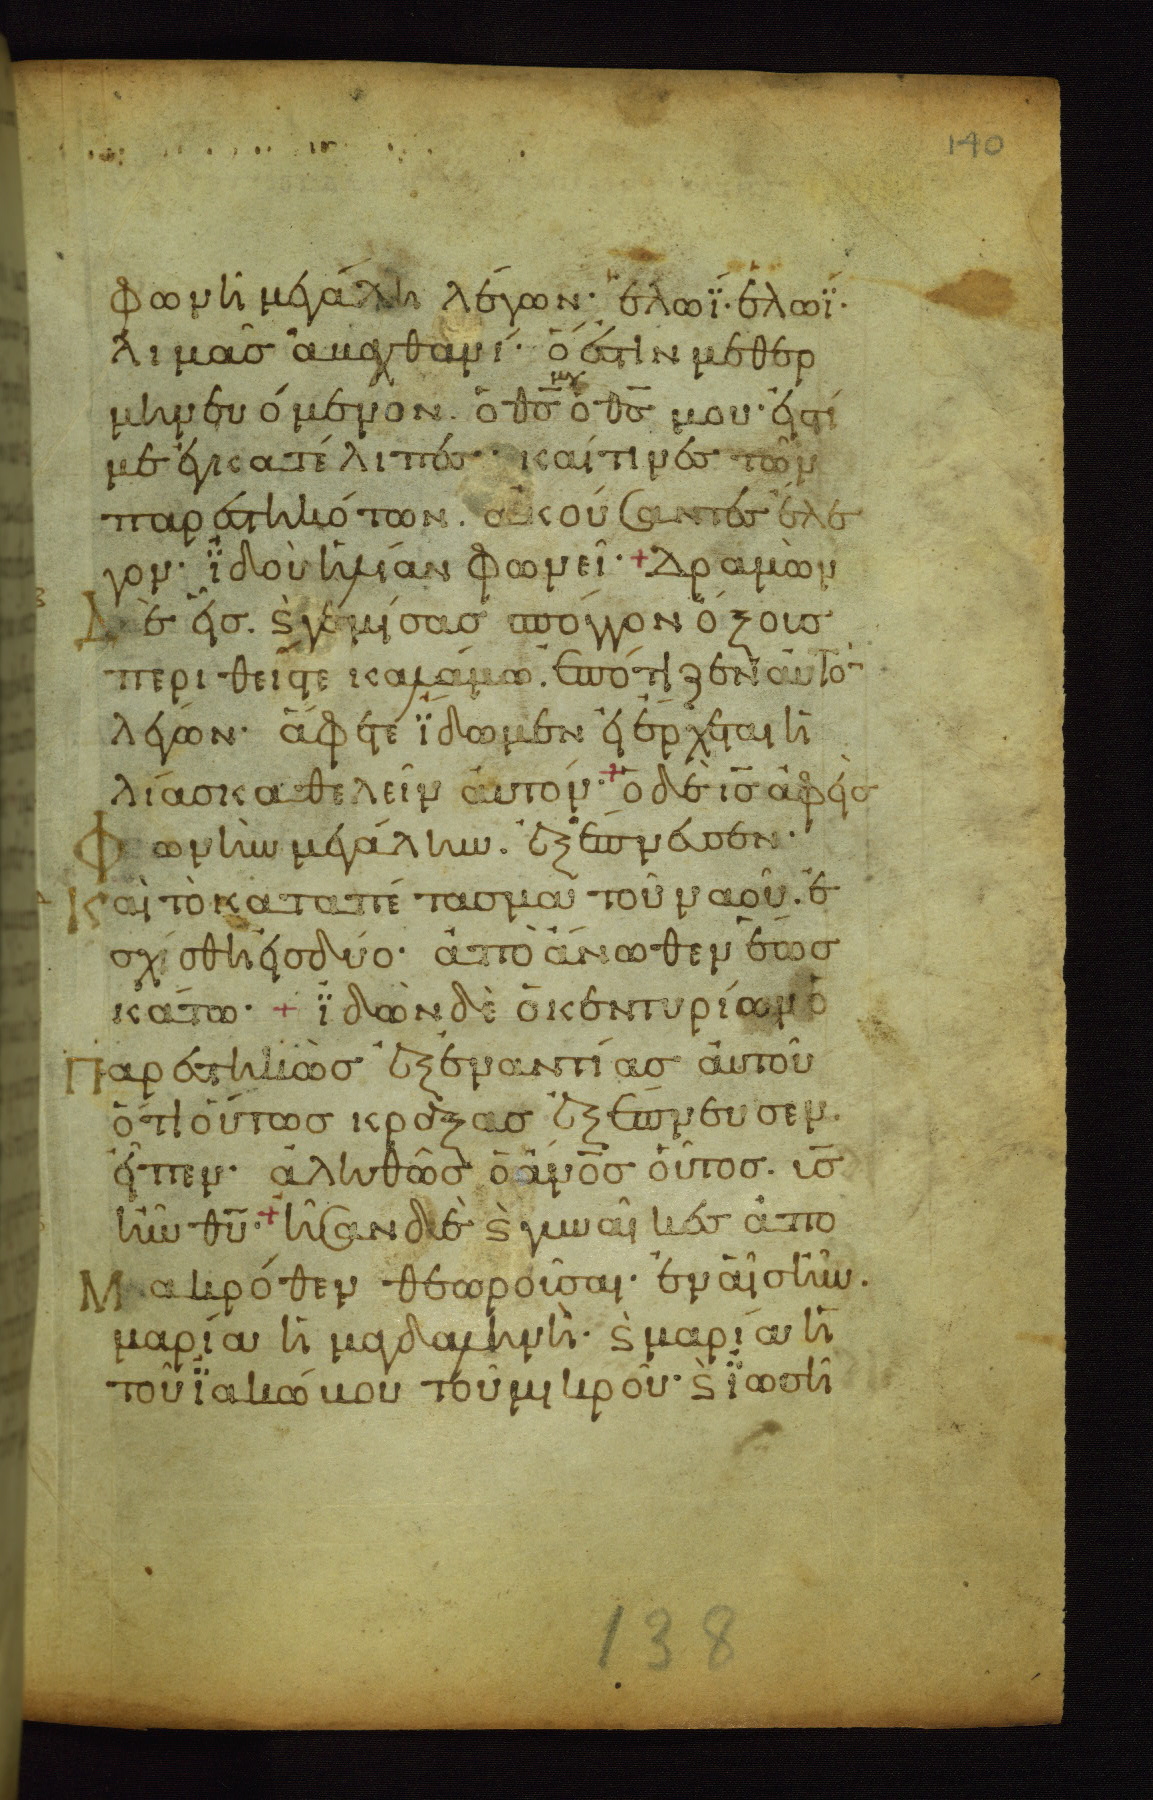 140
φωνῆ μεγάλη λέγων· ἐλωΐ· ἐλωΐ·
λιμᾶς ἀβαχθανί· ὅ ἐστιν μεθερ
μηνευόμενον. ὁ θ̅ς̅ μου ὁ θ̅ς̅ μου· εἰς τί
με ἐγκατέλιπές· καί τινες τῶν
παρεστηκότων. ἀκούσαντες ἔλε
γον· ἴ̈δοὺ ἠλίαν φωνεῖ· + Δραμὼν
Δὲ εἷς. ϗ γεμίσας σπόγγον ὄξους
περιθείς τε καλάμω. ἐπότιζεν αὐτὸ
λέγων· ἄφετε ἴ̈δωμεν εἰ ἔρχεται ἠ
λίας καθελεῖν αὐτόν· + ὁ δὲ ι̅ς̅ ἀφεὶς
Φωνὴν μεγάλην. ἐξέπνευσεν·
Καὶ τὸ καταπέτασμα τοῦ ναοῦ. ἐ
σχίσθη εἰς δύο· ἀπὸ ἄνωθεν ἕως
κάτω· + ἴ̈δὼν δὲ ὁ κεντυρίων ὁ
Παρεστηκὼς ἐξεναντίας αὐτοῦ
ὅτι οὕτως κράξας ἐξέπνευσεν.
εἶπεν· ἀληθῶς ὁ ἄν̅ο̅ς̅ οὗτος. υ̅ς̅
ἦν θ̅υ̅· + ἦσαν δὲ ϗ γυναῖκες ἀπο
Μακρόθεν θεωροῦσαι· ἐν αἷς ἦν.
μαρία ἡ μαγδαληνὴ· ϗ μαρία ἡ
τοῦ ἴ̈ακώβου τοῦ μικροῦ· ϗ ἴ̈ωσῆ
138